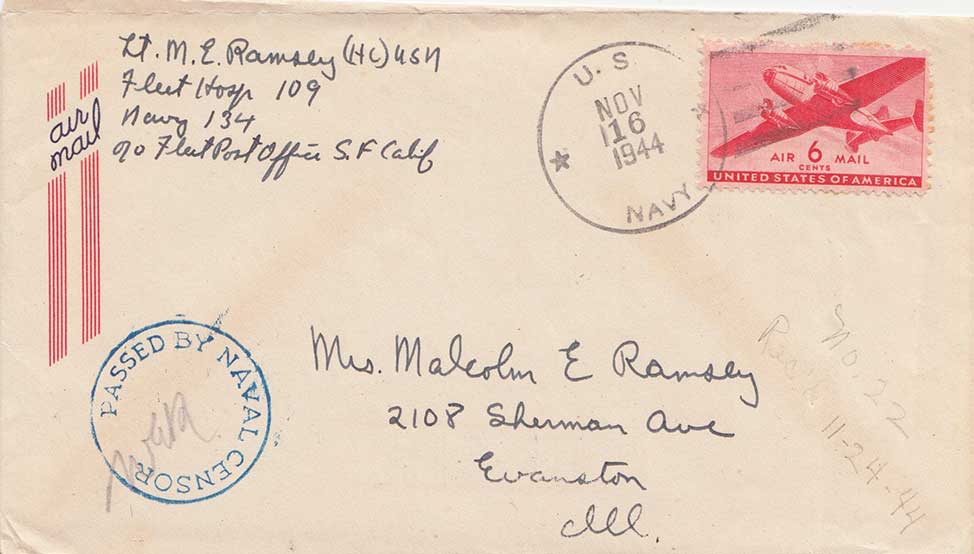 Lt. M. E. Ramsey (HC) USN
Fleet Hosp 109
Navy 134
c/o Fleet Post Office S.F Calif
air
mail
U. S
NOV
16
1944
NAVY
AIR 6 MAIL
CENTS
UNITED STATES OF AMERICA
PASSED BY NAVAL CENSOR
Mrs. Malcolm E Ramsey
2108 Sherman Ave
Evanston
Ill.
No. 22
11-24-44